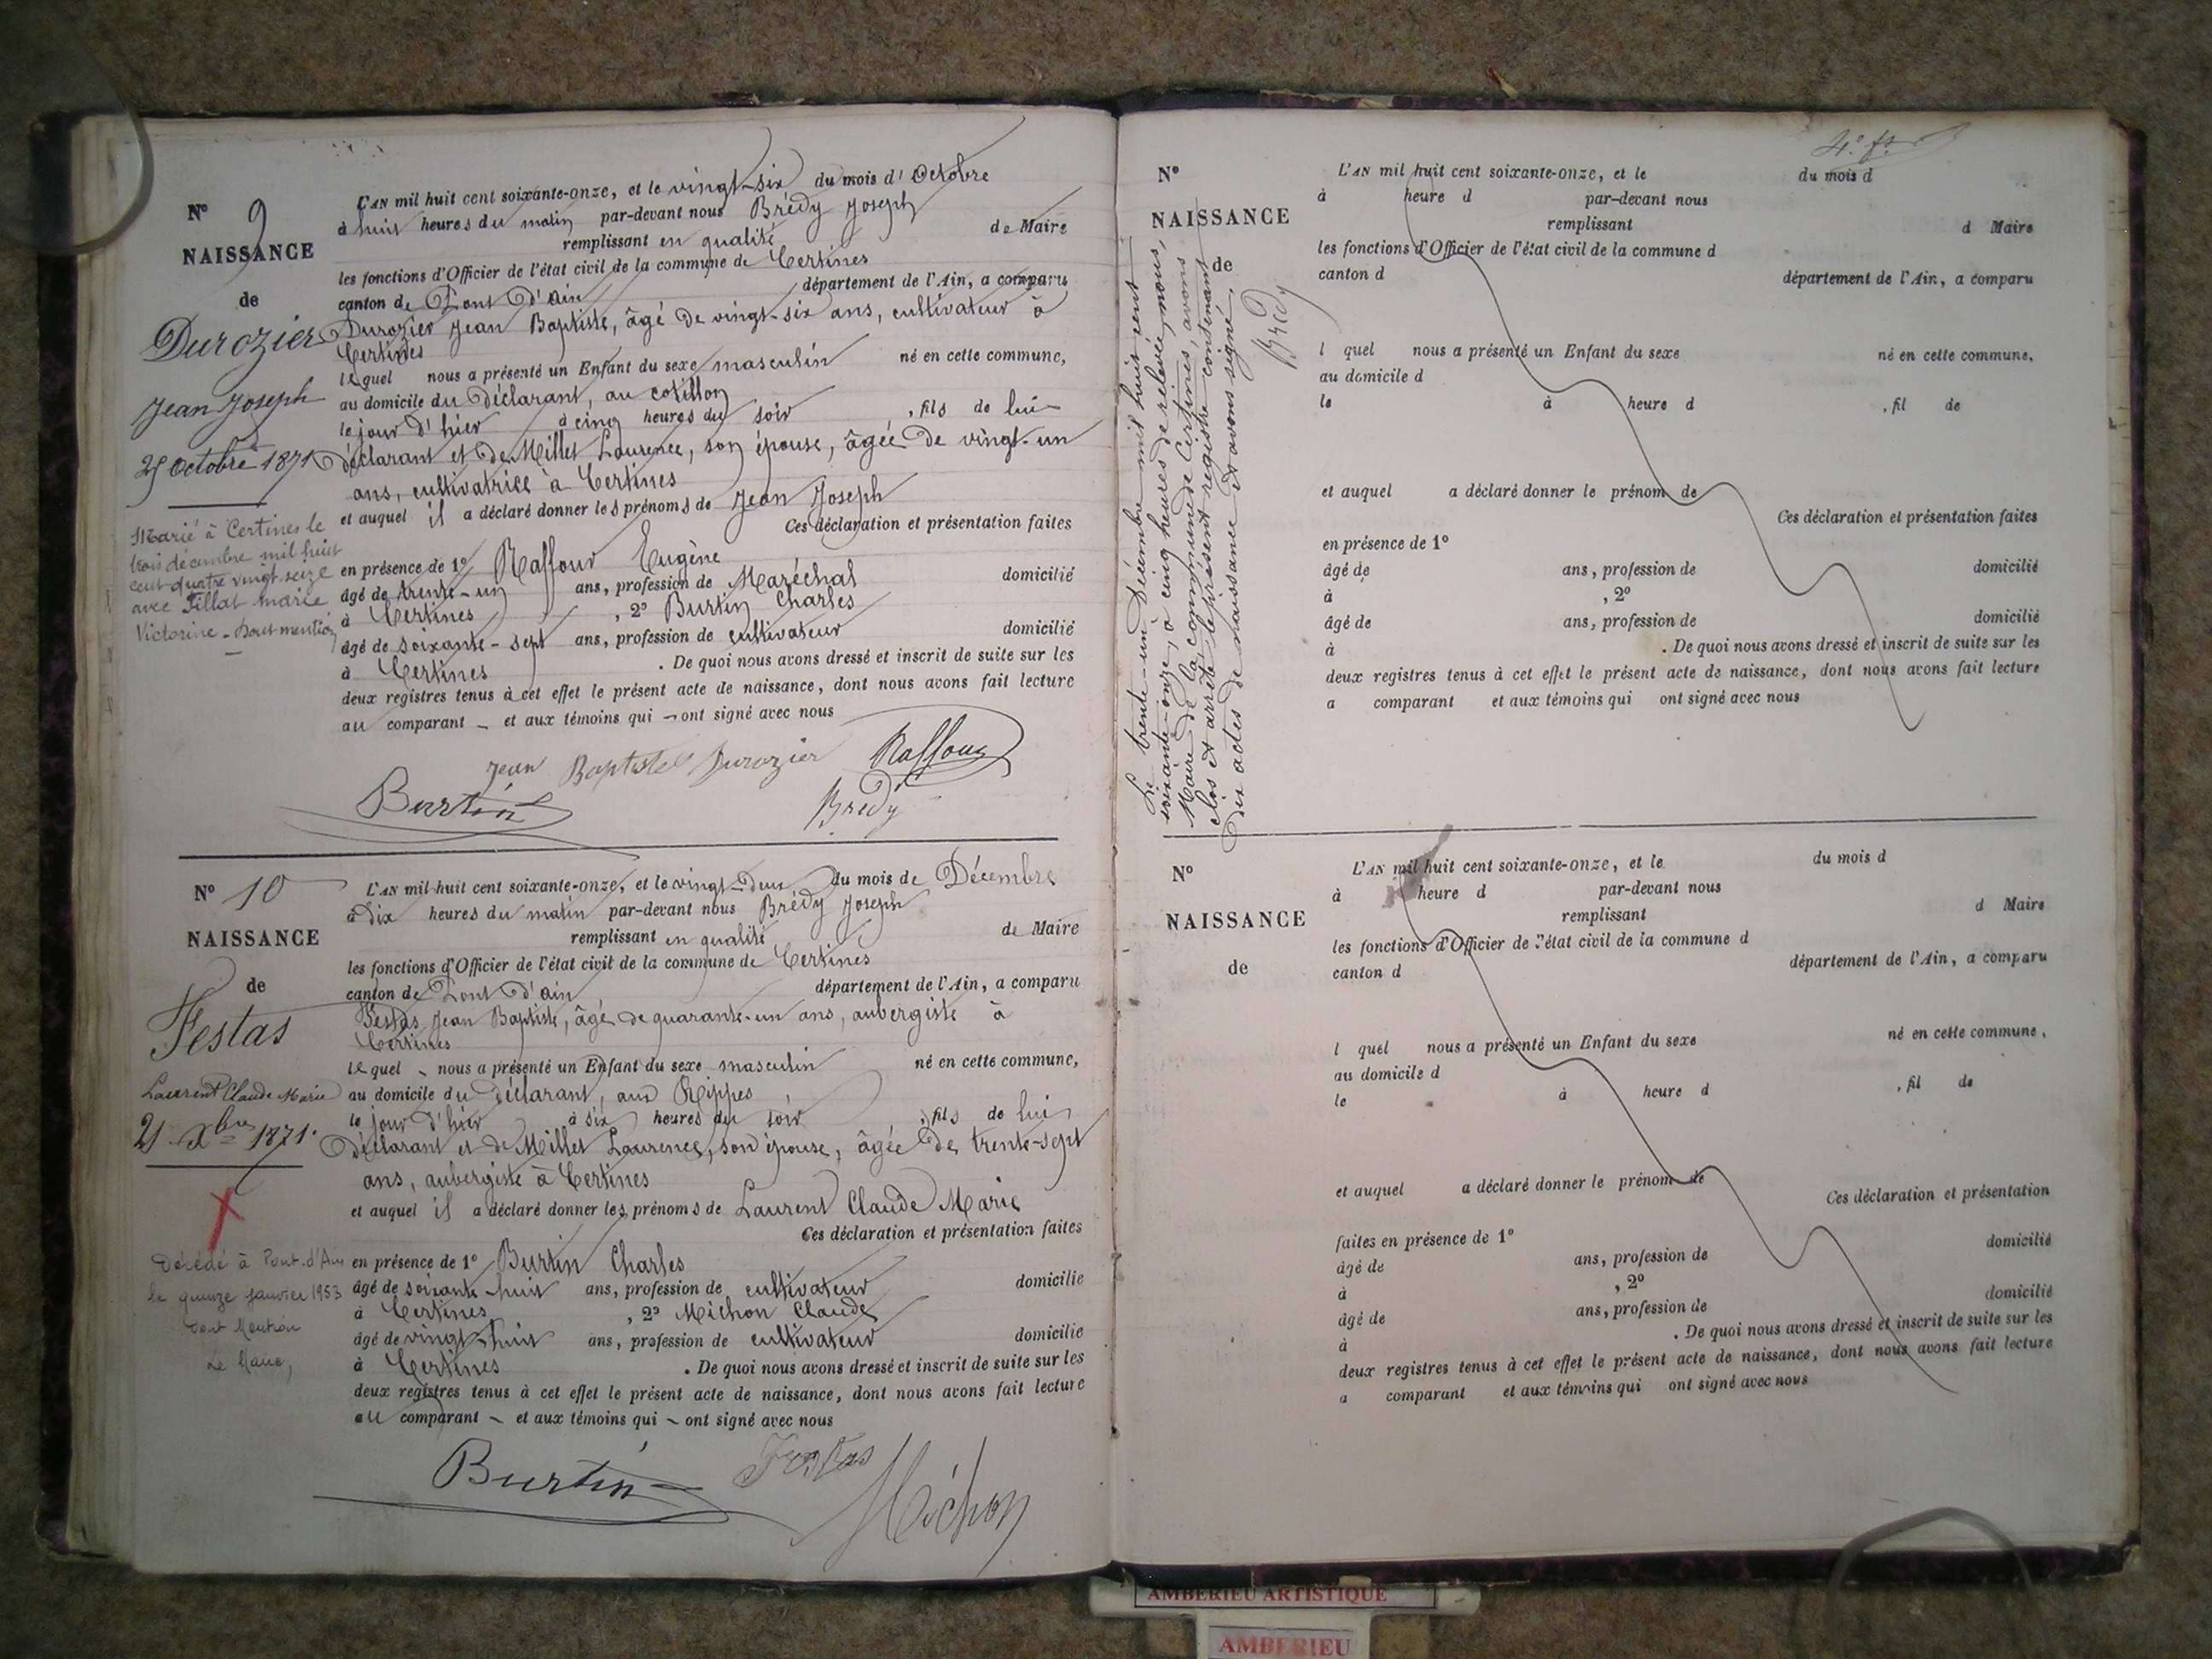 N° 9
NAISSANCE
de
Durozier
Jean Joseph
25 Octobre 1871
Marié à Certines le
trois décembre mil huit
cent quatre vingt seize
avec Pillat Marie
Victorine - Dont mention
L'AN mil huit cent soixante-onze, et le vingt-six du mois d' Octobre
à huit heures du matin par-devant nous Brédy Joseph
remplissant en qualité de Maire
les fonctions d'Officier de l'état civil de la commune de Certines
canton de Pont d'Ain département de l'Ain, a comparu
Durozier Jean Baptiste, âgé de vingt-six ans, cultivateur à
Certines
lequel nous a présenté un Enfant du sexe masculin né en cette commune,
au domicile du Déclarant, au cotillon
le jour d'hier à cinq heures du soir , fils de lui
Déclarant et de Millet Laurence, son épouse, âgée de vingt-un
ans, cultivatrice à Certines
et auquel il a déclaré donner les prénoms de Jean Joseph
Ces déclaration et présentation faites
en présence de 1° Raffour Eugène
âgé de trente-un ans, profession de Maréchal domicilié
à Certines , 2° Burtin Charles
âgé de soixante-sept ans, profession de cultivateur domicilié
à Certines . De quoi nous avons dressé et inscrit de suite sur les
deux registres tenus à cet effet le présent acte de naissance, dont nous avons fait lecture
au comparant - et aux témoins qui - ont signé avec nous
Jean Baptiste Durozier Raffour
Burtin Brédy
N° 10
NAISSANCE
de
Festas
Laurent Claude Marie
21 Xbre 1871.
X
Décédé à Pont-d'Ain
le quinze Janvier 1953
Dont Mention
Le Maire,
L'AN mil huit cent soixante-onze, et le vingt-deux du mois de Décembre
à Dix heures du matin par-devant nous Brédy Joseph
remplissant en qualité de Maire
les fonctions d'Officier de l'état civil de la commune de Certines
canton de Pont d'Ain département de l'Ain, a comparu
Festas Jean Baptiste, âgé de quarante-un ans, aubergiste à
Certines
lequel - nous a présenté un Enfant du sexe masculin né en cette commune,
au domicile du Déclarant, aux Rippes
le jour d'hier à six heures du soir , fils de lui
Déclarant et de Millet Laurence, son épouse, âgée de trente-sept
ans, aubergiste à Certines
et auquel il a déclaré donner les prénoms de Laurent Claude Marie
Ces déclaration et présentation faites
en présence de 1° Burtin Charles
âgé de soixante-huit ans, profession de cultivateur domicilié
à Certines , 2° Michon Claude
âgé de vingt-huit ans, profession de cultivateur domicilié
à Certines . De quoi nous avons dressé et inscrit de suite sur les
deux registres tenus à cet effet le présent acte de naissance, dont nous avons fait lecture
au comparant - et aux témoins qui - ont signé avec nous
Burtin Festas
Michon
4e ft
N°
NAISSANCE
de
Le trente-un Décembre mil huit cent
soixante-onze, à cinq heures de relevée, nous,
Maire de la commune de Certines, avons
clos et arrêté le présent registre contenant
Dix actes de naissance et avons signé.
Brédy
L'AN mil huit cent soixante-onze, et le du mois d
à heure d par-devant nous
remplissant d Maire
les fonctions d'Officier de l'état civil de la commune d
canton d département de l'Ain, a comparu
l quel nous a présenté un Enfant du sexe né en cette commune,
au domicile d
le à heure d , fil de
et auquel a déclaré donner le prénom de
Ces déclaration et présentation faites
en présence de 1°
âgé de ans, profession de domicilié
à , 2°
âgé de ans, profession de domicilié
à . De quoi nous avons dressé et inscrit de suite sur les
deux registres tenus à cet effet le présent acte de naissance, dont nous avons fait lecture
a comparant et aux témoins qui ont signé avec nous
N°
NAISSANCE
de
L'AN mil huit cent soixante-onze, et le du mois d
à heure d par-devant nous
remplissant d Maire
les fonctions d'Officier de l'état civil de la commune d
canton d département de l'Ain, a comparu
l quel nous a présenté un Enfant du sexe né en cette commune,
au domicile d
le à heure d , fil de
et auquel a déclaré donner le prénom de
Ces déclaration et présentation
faites en présence de 1°
âgé de ans, profession de domicilié
à , 2°
âgé de ans, profession de domicilié
à . De quoi nous avons dressé et inscrit de suite sur les
deux registres tenus à cet effet le présent acte de naissance, dont nous avons fait lecture
a comparant et aux témoins qui ont signé avec nous
AMBERIEU ARTISTIQUE
AMBERIEU